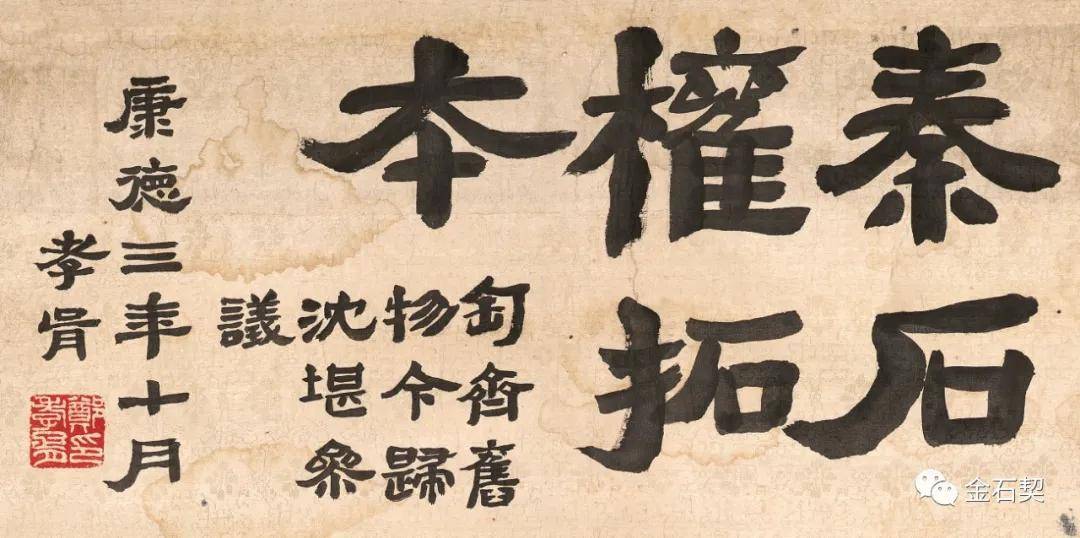 秦石
權拓
本
匋齋舊
物今歸
沈堪參
議
康德三年十月
孝胥
鄭印
孝胥
金石契